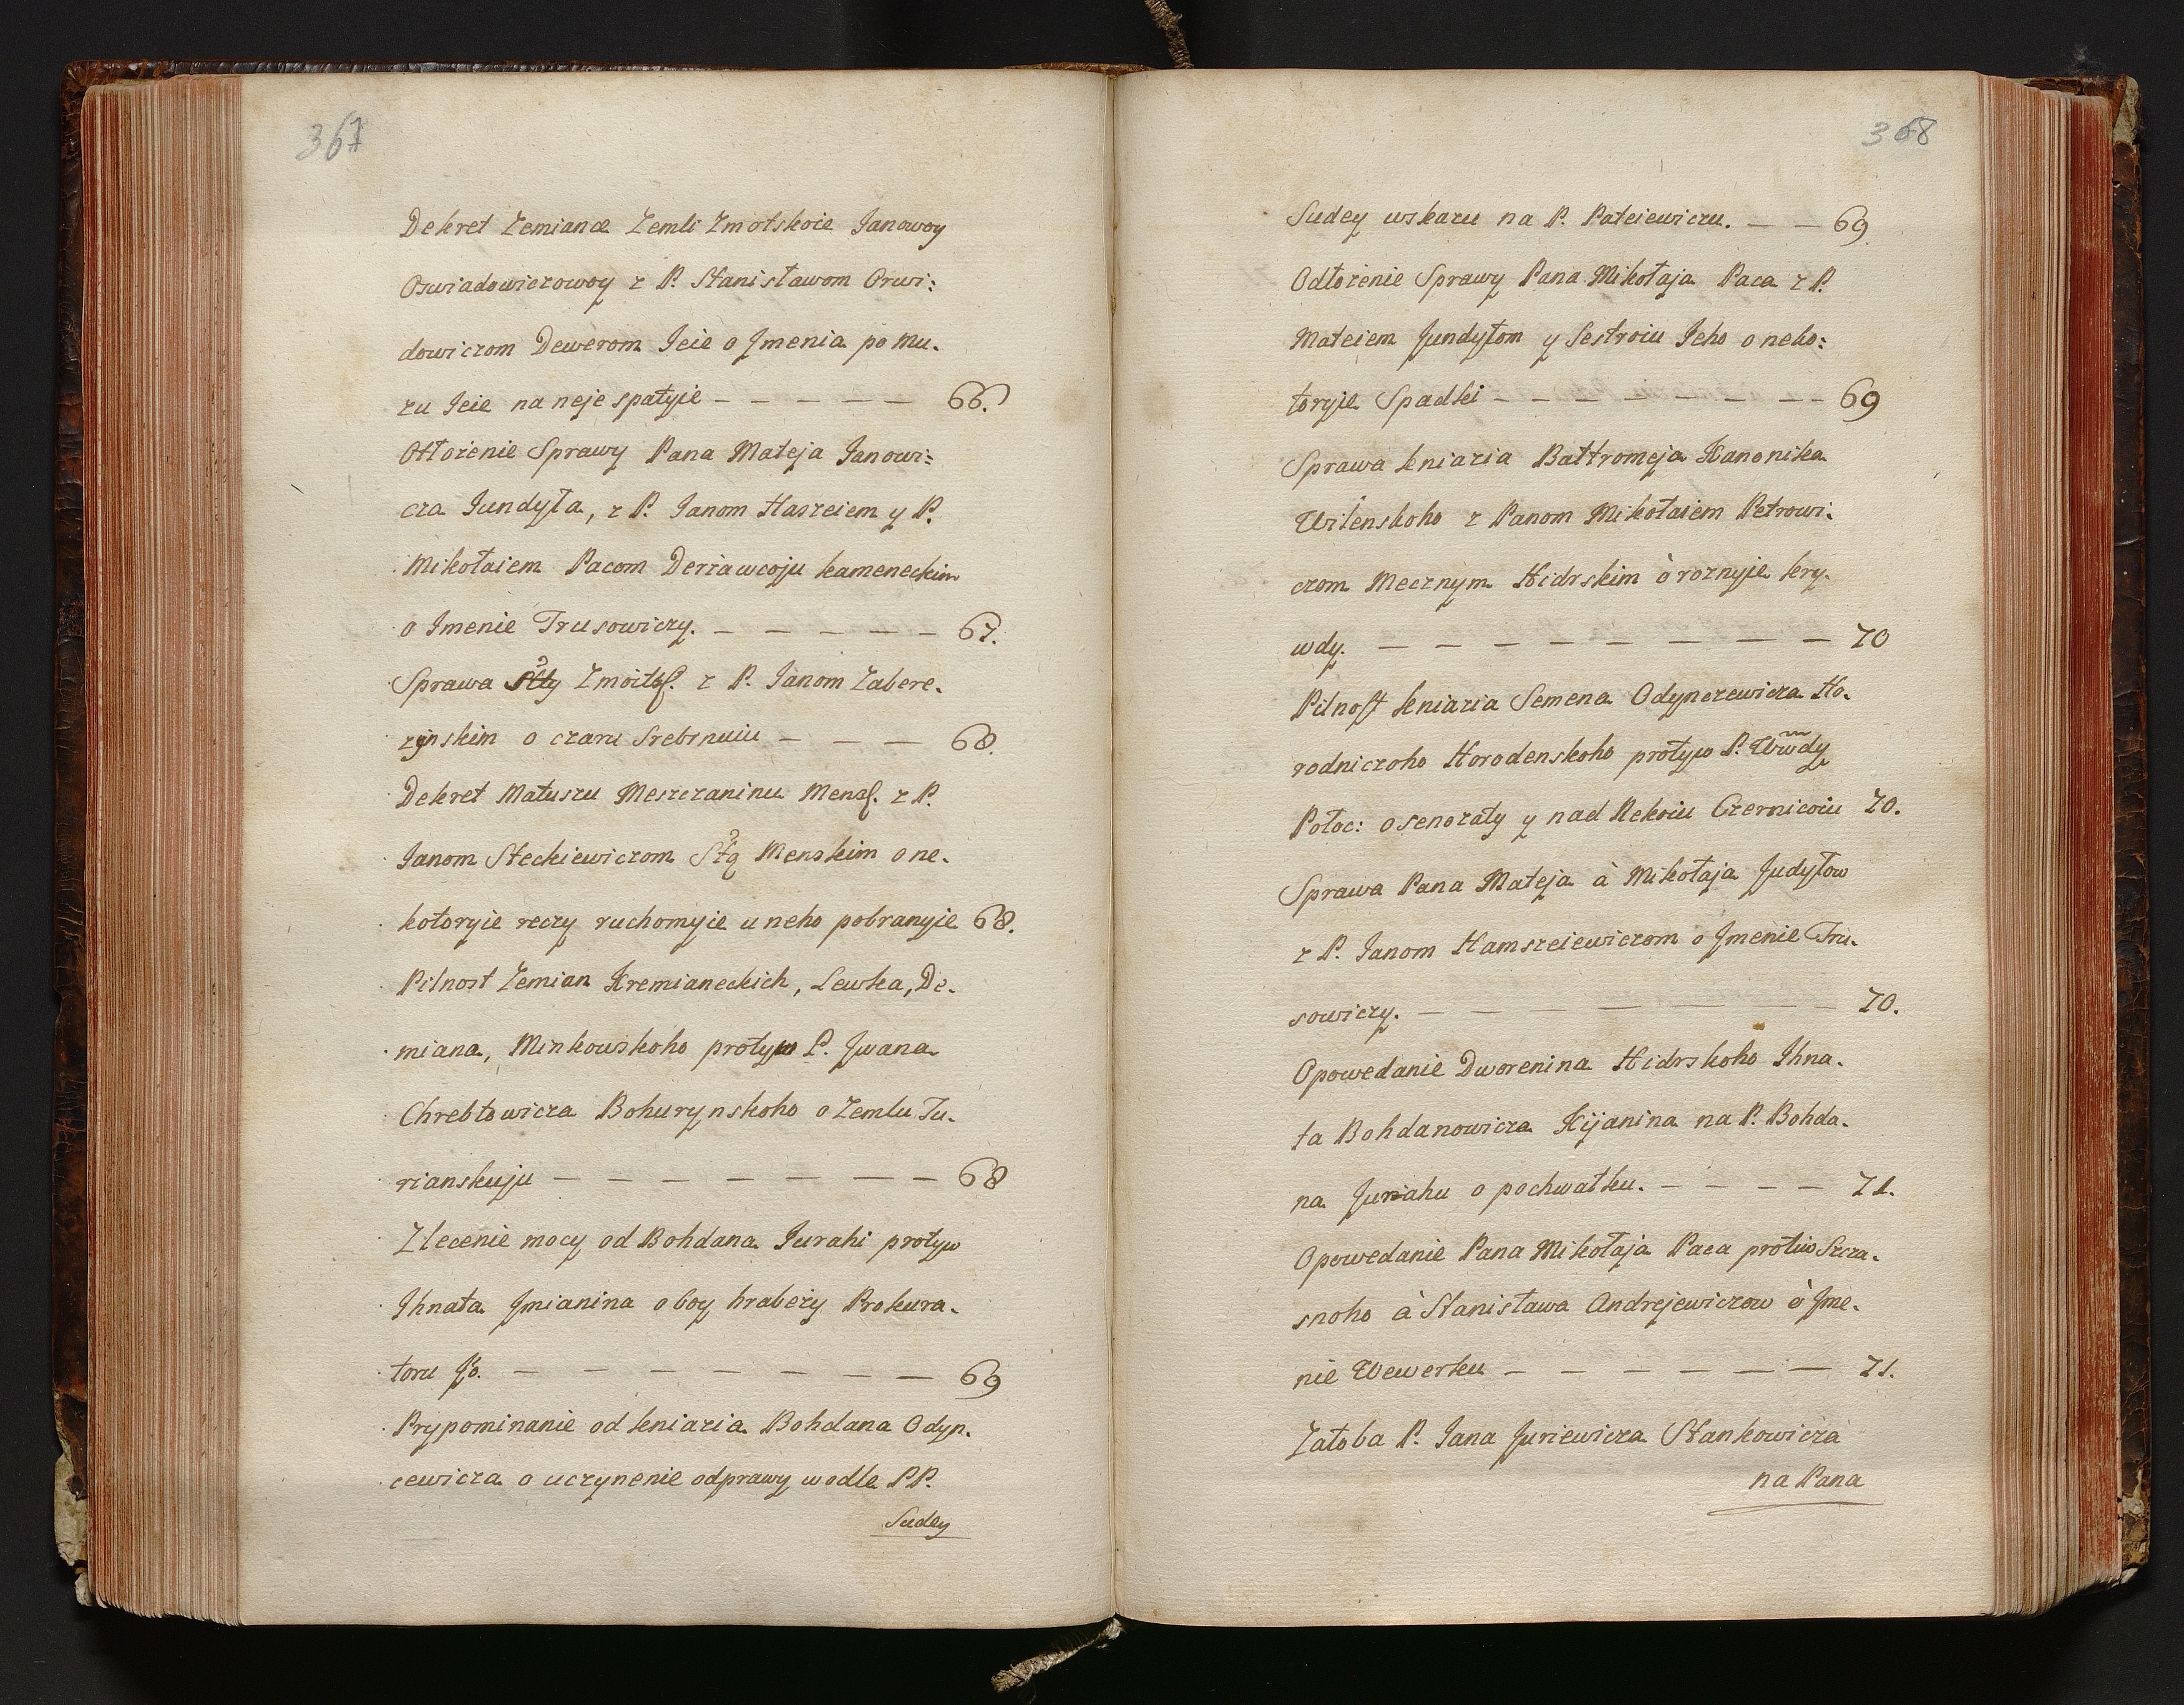 367
Dekret Zemiance Zemli Zmotskoie Janowoy
Oswiadowiczowoy z P. Stanisławom Orwi:
dowiczom Dewerom Jeie o Jmenia po mu-
zu Jeie na neje spatyie — — — — — 66.
Otłożenie Sprawy Pana Mateja Janowi:
cza Jundyła, z P. Janom Haszeiem y P.
Mikołaiem Pacom Derżawcoju kameneckim
o Jmenie Trusowiczy. — — — — — 67.
Sprawa Zmoits. z P. Janom Zabere-
zynskim o czaru Srebrnuiu — — — 68.
Dekret Matuszu Meszczaninu Mens. z P.
Janom Steckiewiczom Stą Menskim o ne-
kotoryie reczy ruchomyie u neho pobranyie 68.
Pilnost Zemian Kremianeckich, Lewka, De-
miana, Minkowskoho protyw P. Jwana
Chrebtowicza Bohurynskoho o Zemlu Tu-
rianskuju — — — — — — — 68
Zlecenie mocy od Bohdana Jurahi protyw
Ihnata Jmianina o boy hrabeży Prokura-
toru Jo. — — — — — — — — 69
Prypominanie od kniazia Bohdana Odyn-
cewicza o uczynenie odprawy wodle PP.
Sudey
368
Sudey wskazu na P. Pateiewiczu. — — 69.
Odłożenie Sprawy Pana Mikołaja Paca z P.
Mateiem Jundyłom y Sestroiu Jeho o neko:
toryie Spadki — — — — — — — — 69
Sprawa kniazia Bałtromeja Kanonika
Wilenskoho z Panom Mikołaiem Petrowi-
czom Mecznym Hidrskim ò roznyie kry-
wdy. — — — — — — — — — 70
Pilnost kniazia Semena Odyncewicza Ho-
rodniczoho Horodenskoho protyw P. Wwdy
Połoc: o senozaty y nad Rekoiu Czernicoiu 70.
Sprawa Pana Mateja à Mikołaja Judyłow
z P. Janom Hamszeiewiczom o Jmenie Tru-
sowiczy. — — — — — — — 70.
Opowedanie Dworenina Hidrskoho Ihna-
ta Bohdanowicza Kijanina na P. Bohda-
na Juriahu o pochwałku. — — — — 71.
Opowedanie Pana Mikołaja Paca protiw Szcza-
snoho à Stanisława Andrejewiczow ò Jme-
nie Wewerku — — — — — — 71.
Załoba P. Jana Juriewicza Stankowicza
na Pana